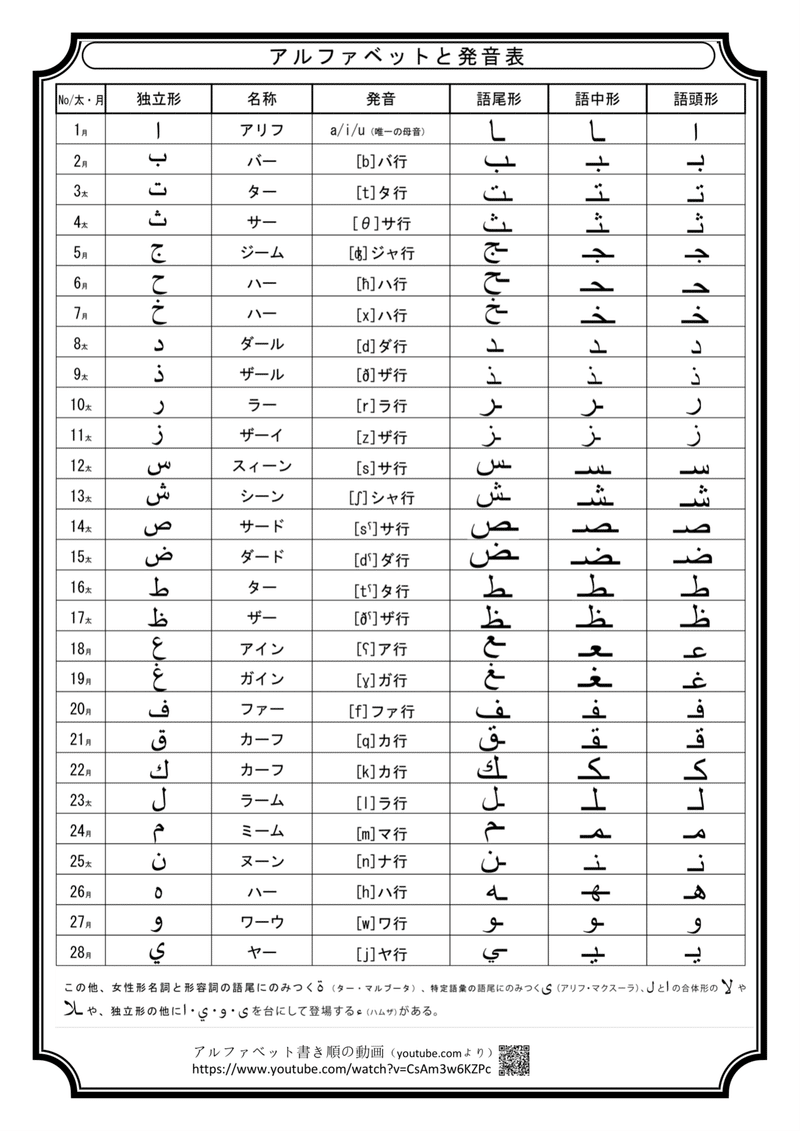 アルファベットと発音表
No/太・月 独立形 名称 発音 語尾形 語中形 語頭形
1月 ا アリフ a/i/u（唯一の母音） ـا ـا ا
2月 ب バー [b]バ行 ـب ـبـ بـ
3太 ت ター [t]タ行 ـت ـتـ تـ
4太 ث サー [θ]サ行 ـث ـثـ ثـ
5月 ج ジーム [ʤ]ジャ行 ـج ـجـ جـ
6月 ح ハー [ħ]ハ行 ـح ـحـ حـ
7月 خ ハー [x]ハ行 ـخ ـخـ خـ
8太 د ダール [d]ダ行 ـد ـد د
9太 ذ ザール [ð]ザ行 ـذ ـذ ذ
10太 ر ラー [r]ラ行 ـر ـر ر
11太 ز ザーイ [z]ザ行 ـز ـز ز
12太 س スィーン [s]サ行 ـس ـسـ سـ
13太 ش シーン [ʃ]シャ行 ـش ـشـ شـ
14太 ص サード [sˤ]サ行 ـص ـصـ صـ
15太 ض ダード [dˤ]ダ行 ـض ـضـ ضـ
16太 ط ター [tˤ]タ行 ـط ـطـ طـ
17太 ظ ザー [ðˤ]ザ行 ـظ ـظـ ظـ
18月 ع アイン [ʕ]ア行 ـع ـعـ عـ
19月 غ ガイン [ɣ]ガ行 ـغ ـغـ غـ
20月 ف ファー [f]ファ行 ـف ـفـ فـ
21月 ق カーフ [q]カ行 ـق ـقـ قـ
22月 ك カーフ [k]カ行 ـك ـكـ كـ
23太 ل ラーム [l]ラ行 ـل ـلـ لـ
24月 م ミーム [m]マ行 ـم ـمـ مـ
25太 ن ヌーン [n]ナ行 ـن ـنـ نـ
26月 ه ハー [h]ハ行 ـه ـهـ هـ
27月 و ワーウ [w]ワ行 ـو ـو و
28月 ي ヤー [j]ヤ行 ـي ـيـ يـ
この他、女性形名詞と形容詞の語尾にのみつく ة （ター・マルブータ）、特定語彙の語尾にのみつく ى （アリフ・マクスーラ）、ل と ا の合体形の لا や
ـلا や、独立形の他に ا・ي・و・ى を台にして登場する ء（ハムザ）がある。
アルファベット書き順の動画（youtube.comより）
https://www.youtube.com/watch?v=CsAm3w6KZPc